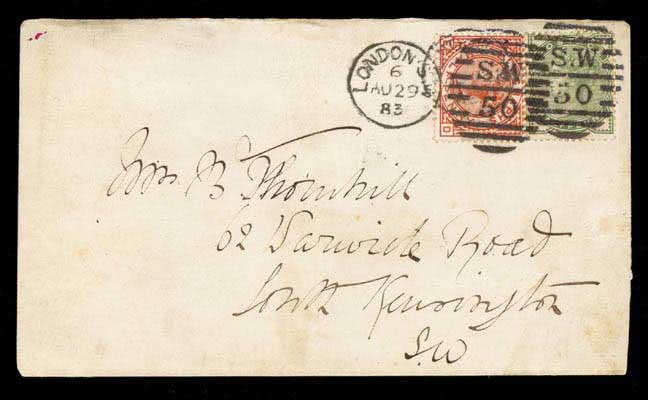 LONDON S.W
6
AU 29
83
S.W
50
S.W
50
B Thornhill
62 Warwick Road
South Kensington
S.W